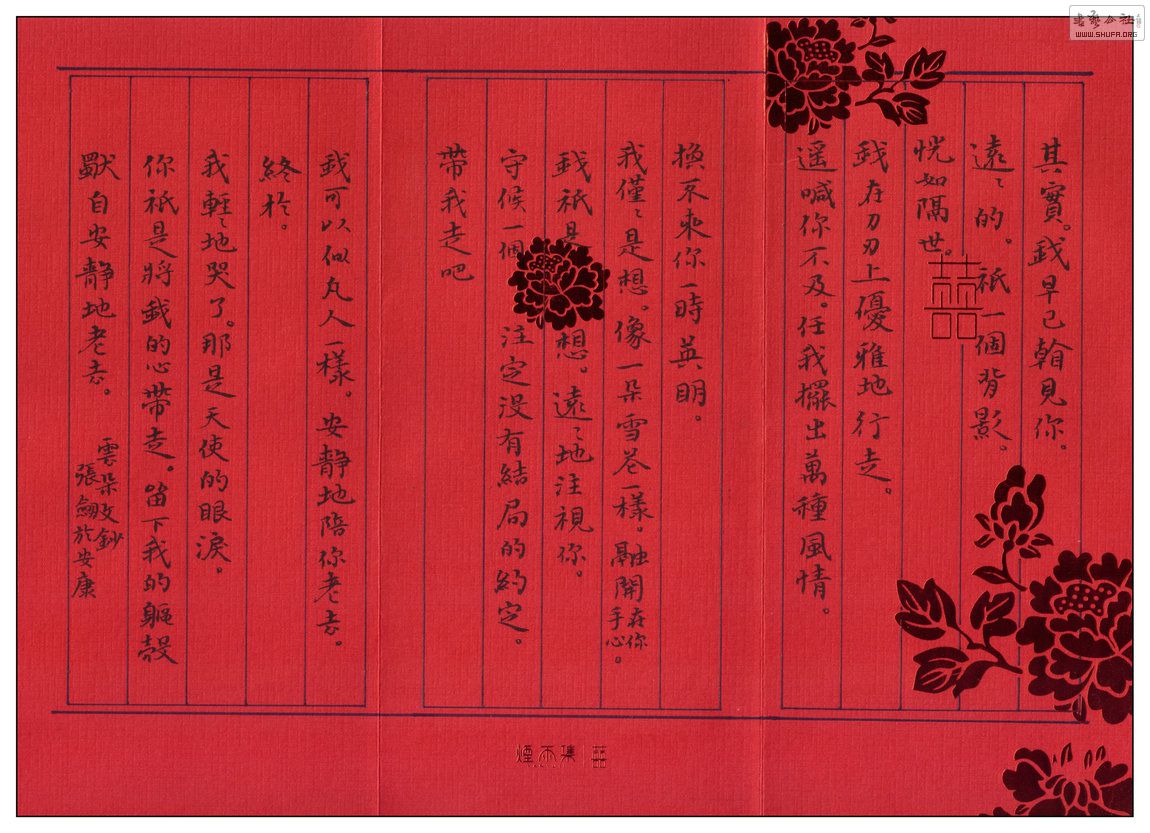 其實。我早已翰見你。
遠〻的。祇一個背影。
恍如隔世。
我在刀刃上優雅地行走。
遥喊你不及。任我擺出萬種風情。
換不來你一時英明。
我僅〻是想。像一朵雪花一樣。融開在你手心。
我祇是想。遠〻地注視你。
守候一個注定没有結局的約定。
帶我走吧
我可以似凡人一樣。安靜地陪你老去。
終於。
我輕〻地哭了。那是天使的眼淚。
你祇是將我的心帶走。留下我的軀殼
獸自安靜地老去。
雲朵文鈔
張劍於安康
煙雨集 囍
書藝公社
WWW.SHUFA.ORG